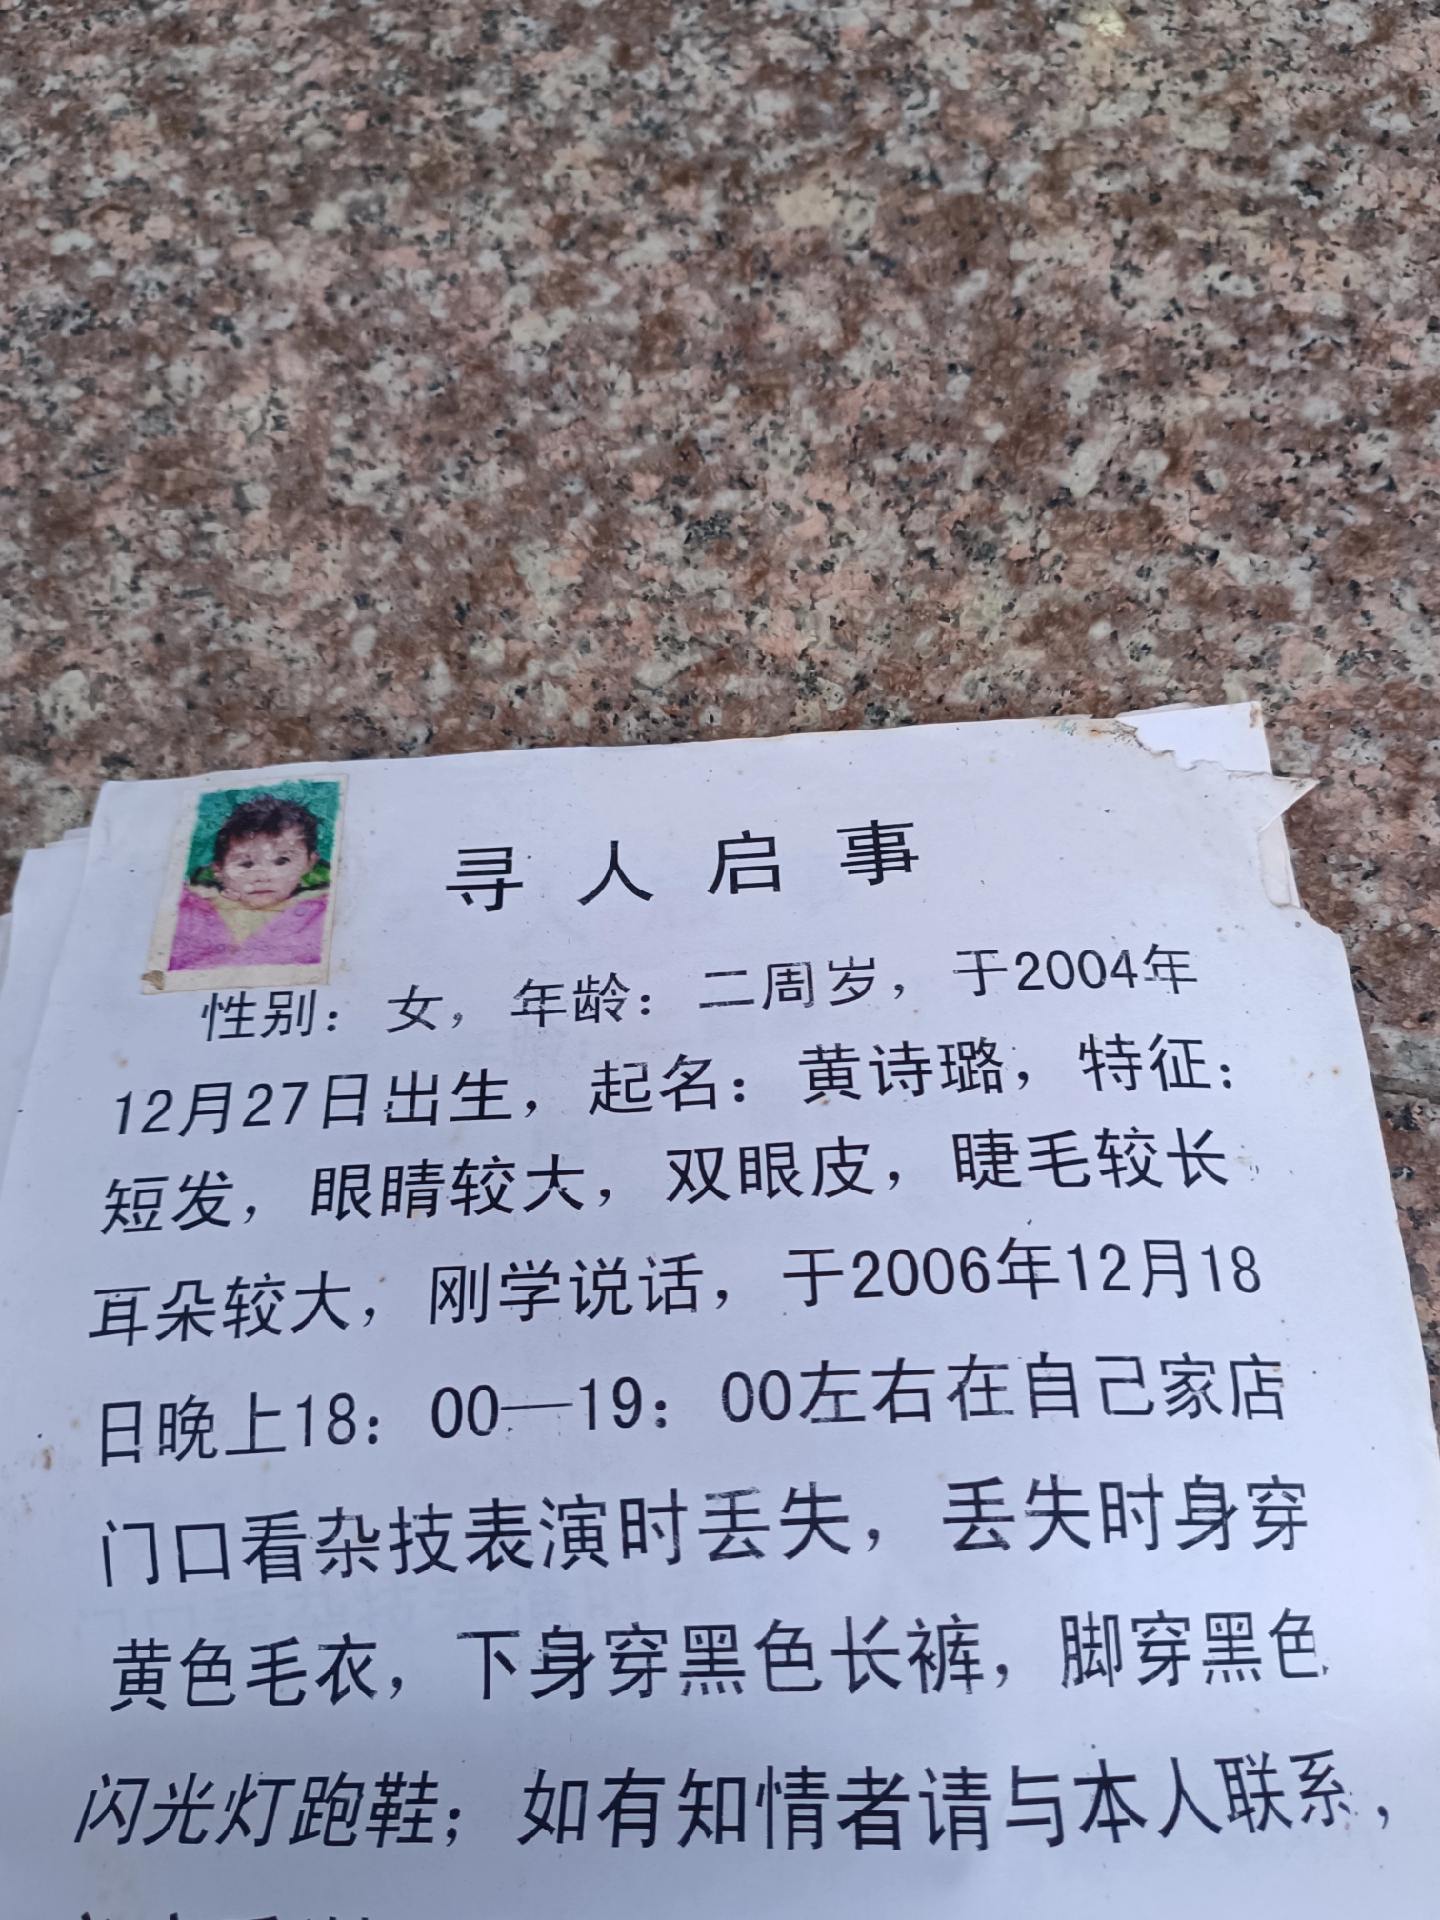 寻人启事
性别：女，年龄：二周岁，于2004年
12月27日出生，起名：黄诗璐，特征：
短发，眼睛较大，双眼皮，睫毛较长，
耳朵较大，刚学说话，于2006年12月18
日晚上18：00—19：00左右在自己家店
门口看杂技表演时丢失，丢失时身穿
黄色毛衣，下身穿黑色长裤，脚穿黑色
闪光灯跑鞋；如有知情者请与本人联系，